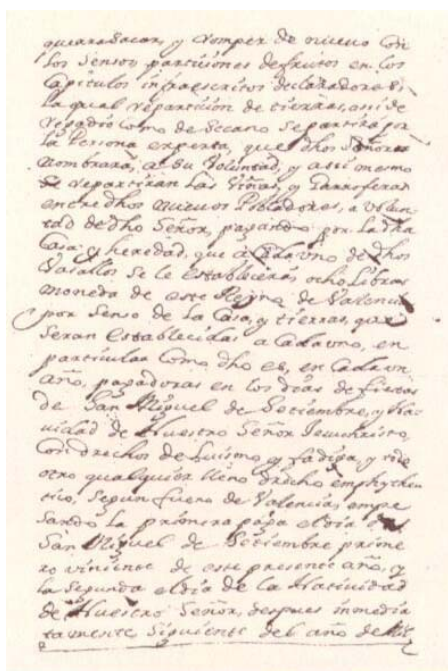 quiara sacar, y romper de nuevo con
los sensos, particiones de frutos en los
Capitulos infraescritos declaradores;
la qual reparticion de tierras, assi de
regadio como de secano se partirà por
la Persona experta, que dhos Señores
nombraràn, a su Voluntad, y assi mesmo
se repartiran las Viñas, y Garroferas
entre dhos nuevos Pobladores, a volun
tad de dho Señor, pagando por la dha
Casa y heredad, que à Cada uno de dhos
Vasallos se le estableciràn, ocho Libras
moneda de este Reyno de Valencia
por senso de la Casa, y tierras, que
seran establecidas a Cada uno, en
particular Como dho es, en Cada un
año, pagadoras en los dias de fiestas
de San Miguel de Setiembre, y Na
vidad de Nuestro Señor Jesuchristo,
Con drechos de Luismo y fadiga, y todo
otro qualquier lleno drecho emphyteu
tico, segun fuero de Valencia, empe
sando la primera paga el dia de
San Miguel de Setiembre prime
ro viniente de este presente año, y
la segunda el dia de la Natividad
de Nuestro Señor, despues inmedia
tamente siguiente del año de Mil